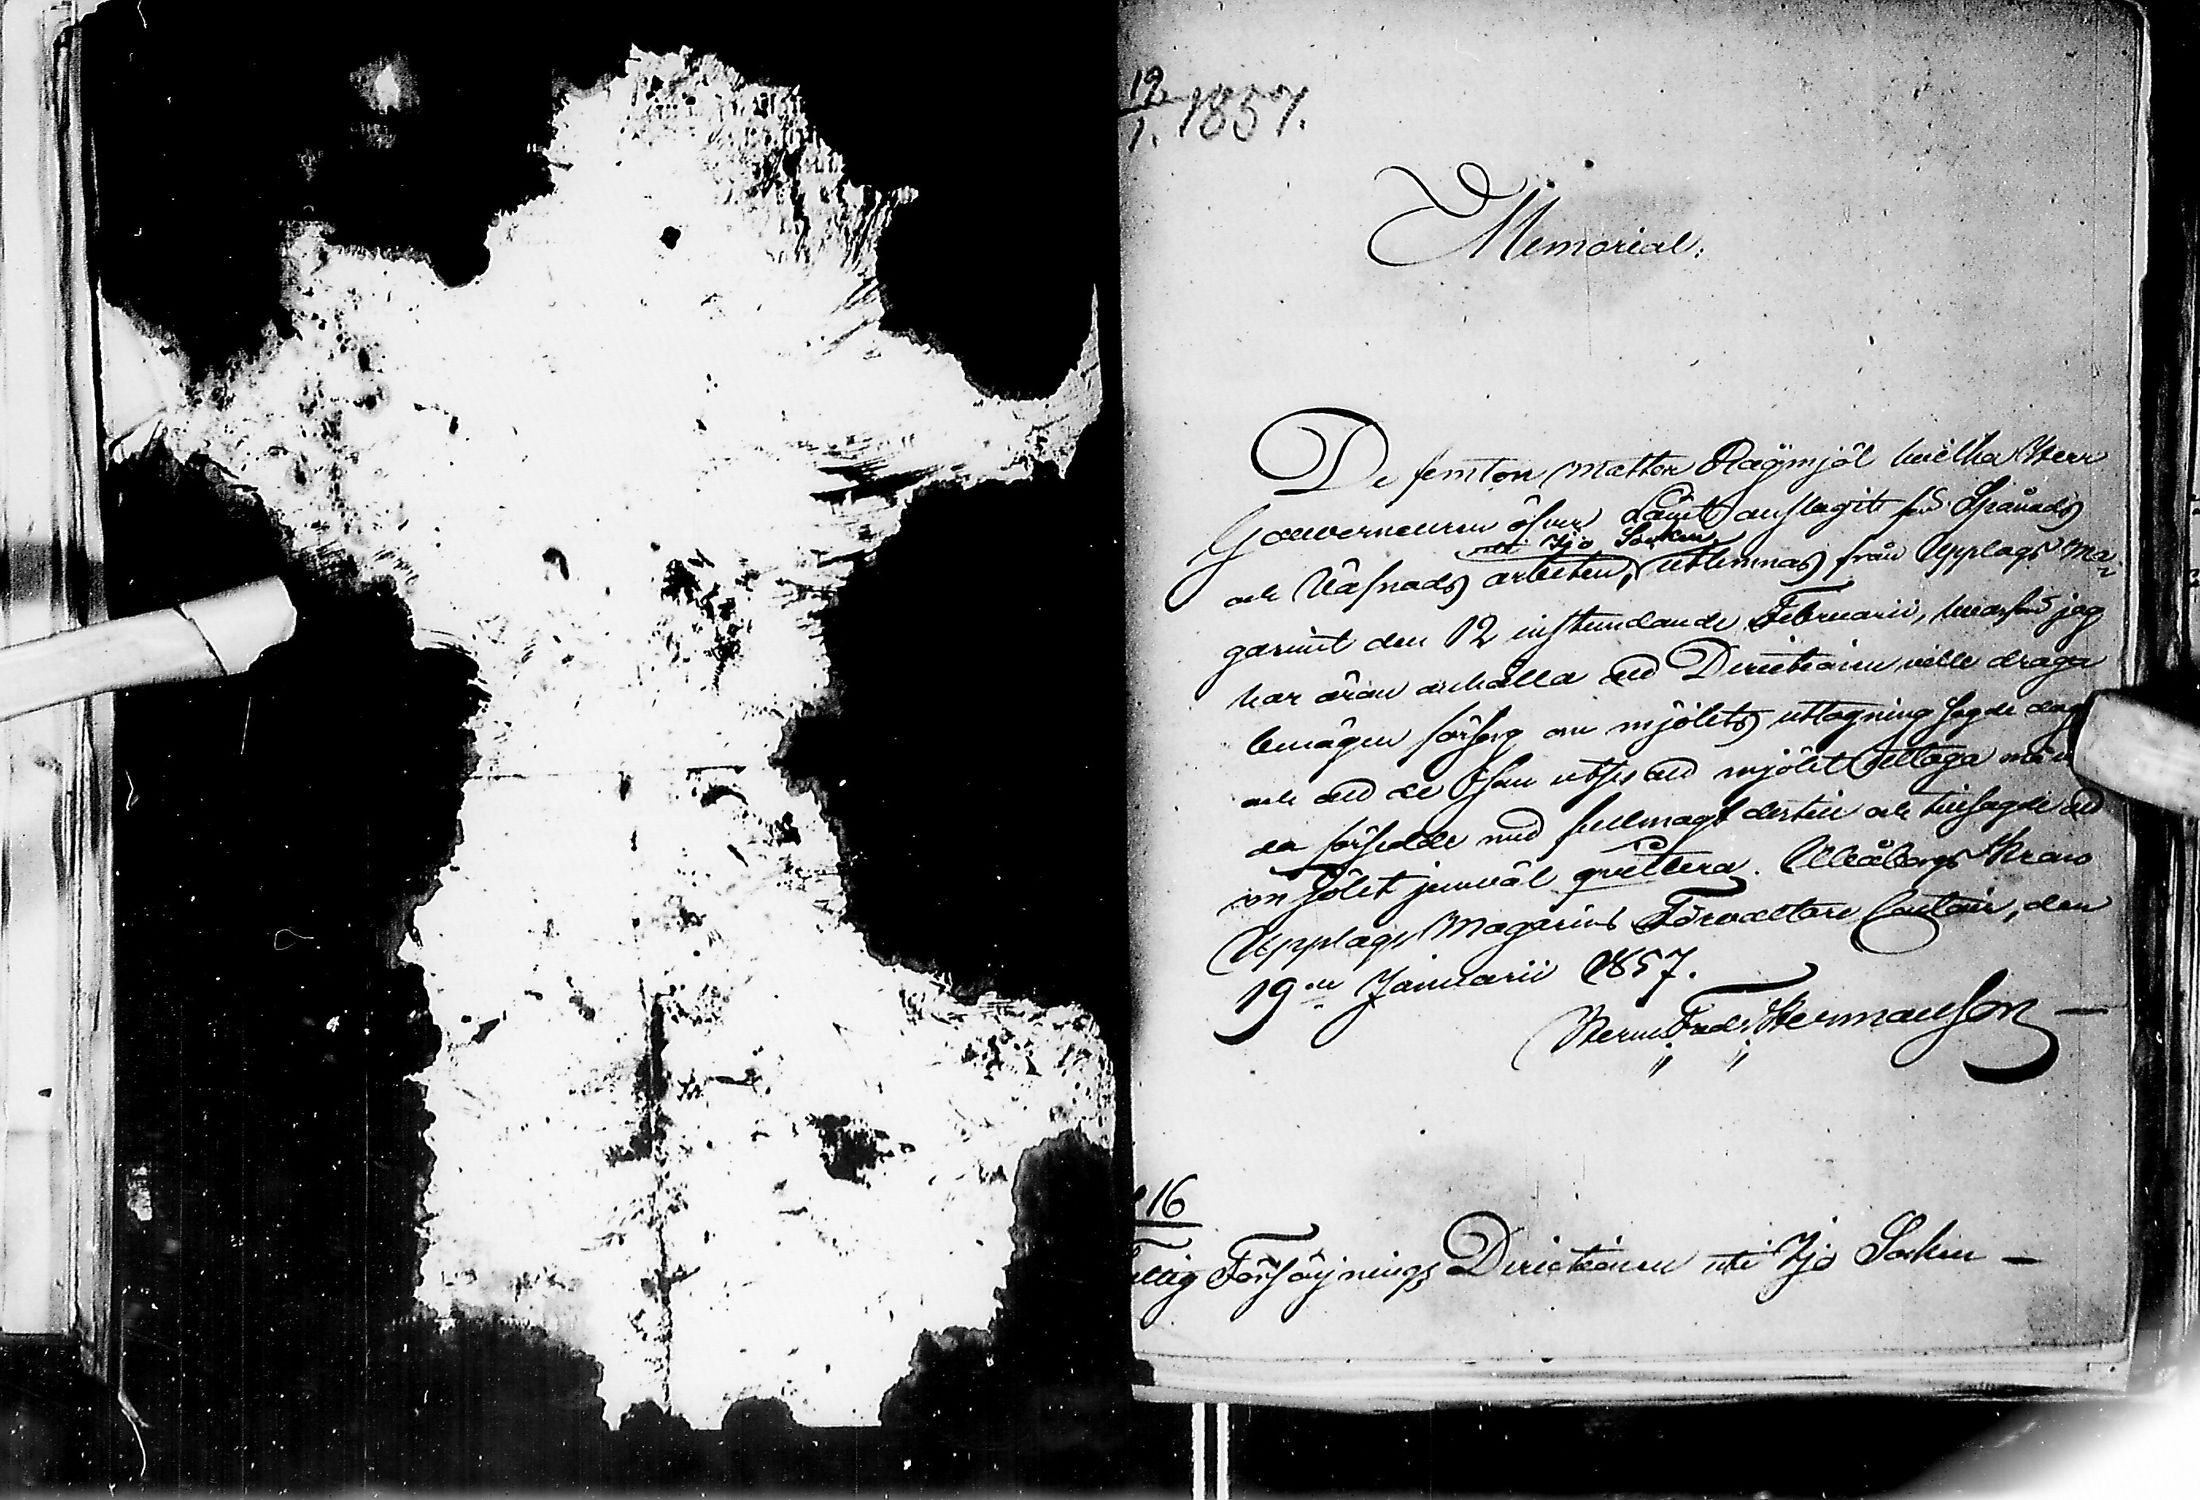 19/1. 1857.
Memorial.
De femton Mattor Rågmjöl hvilka Herr
Gouverneuren öfver Länet anslagit för Spånads
uti Ijo Socken
och Väfnads arbeten, utlemnas från Upplags Ma-
gazinet den 12 instundande Februarii, hvarföre jag
har äran anhålla att Directionen ville draga
benägen försorg om mjölets uttagning sagde dag
och att de som utses att mjölet uttaga må
da försedde med fullmagt dertill och tillsagde att
mjölet jemväl qvittera. Uleåborgs Krono
Upplags Magazins Förvaltare Contoir, den
19de Januarii 1857.
Herm: Fredr: Hermanson
16
Fattig Försörjnings Directionen uti Ijo Socken